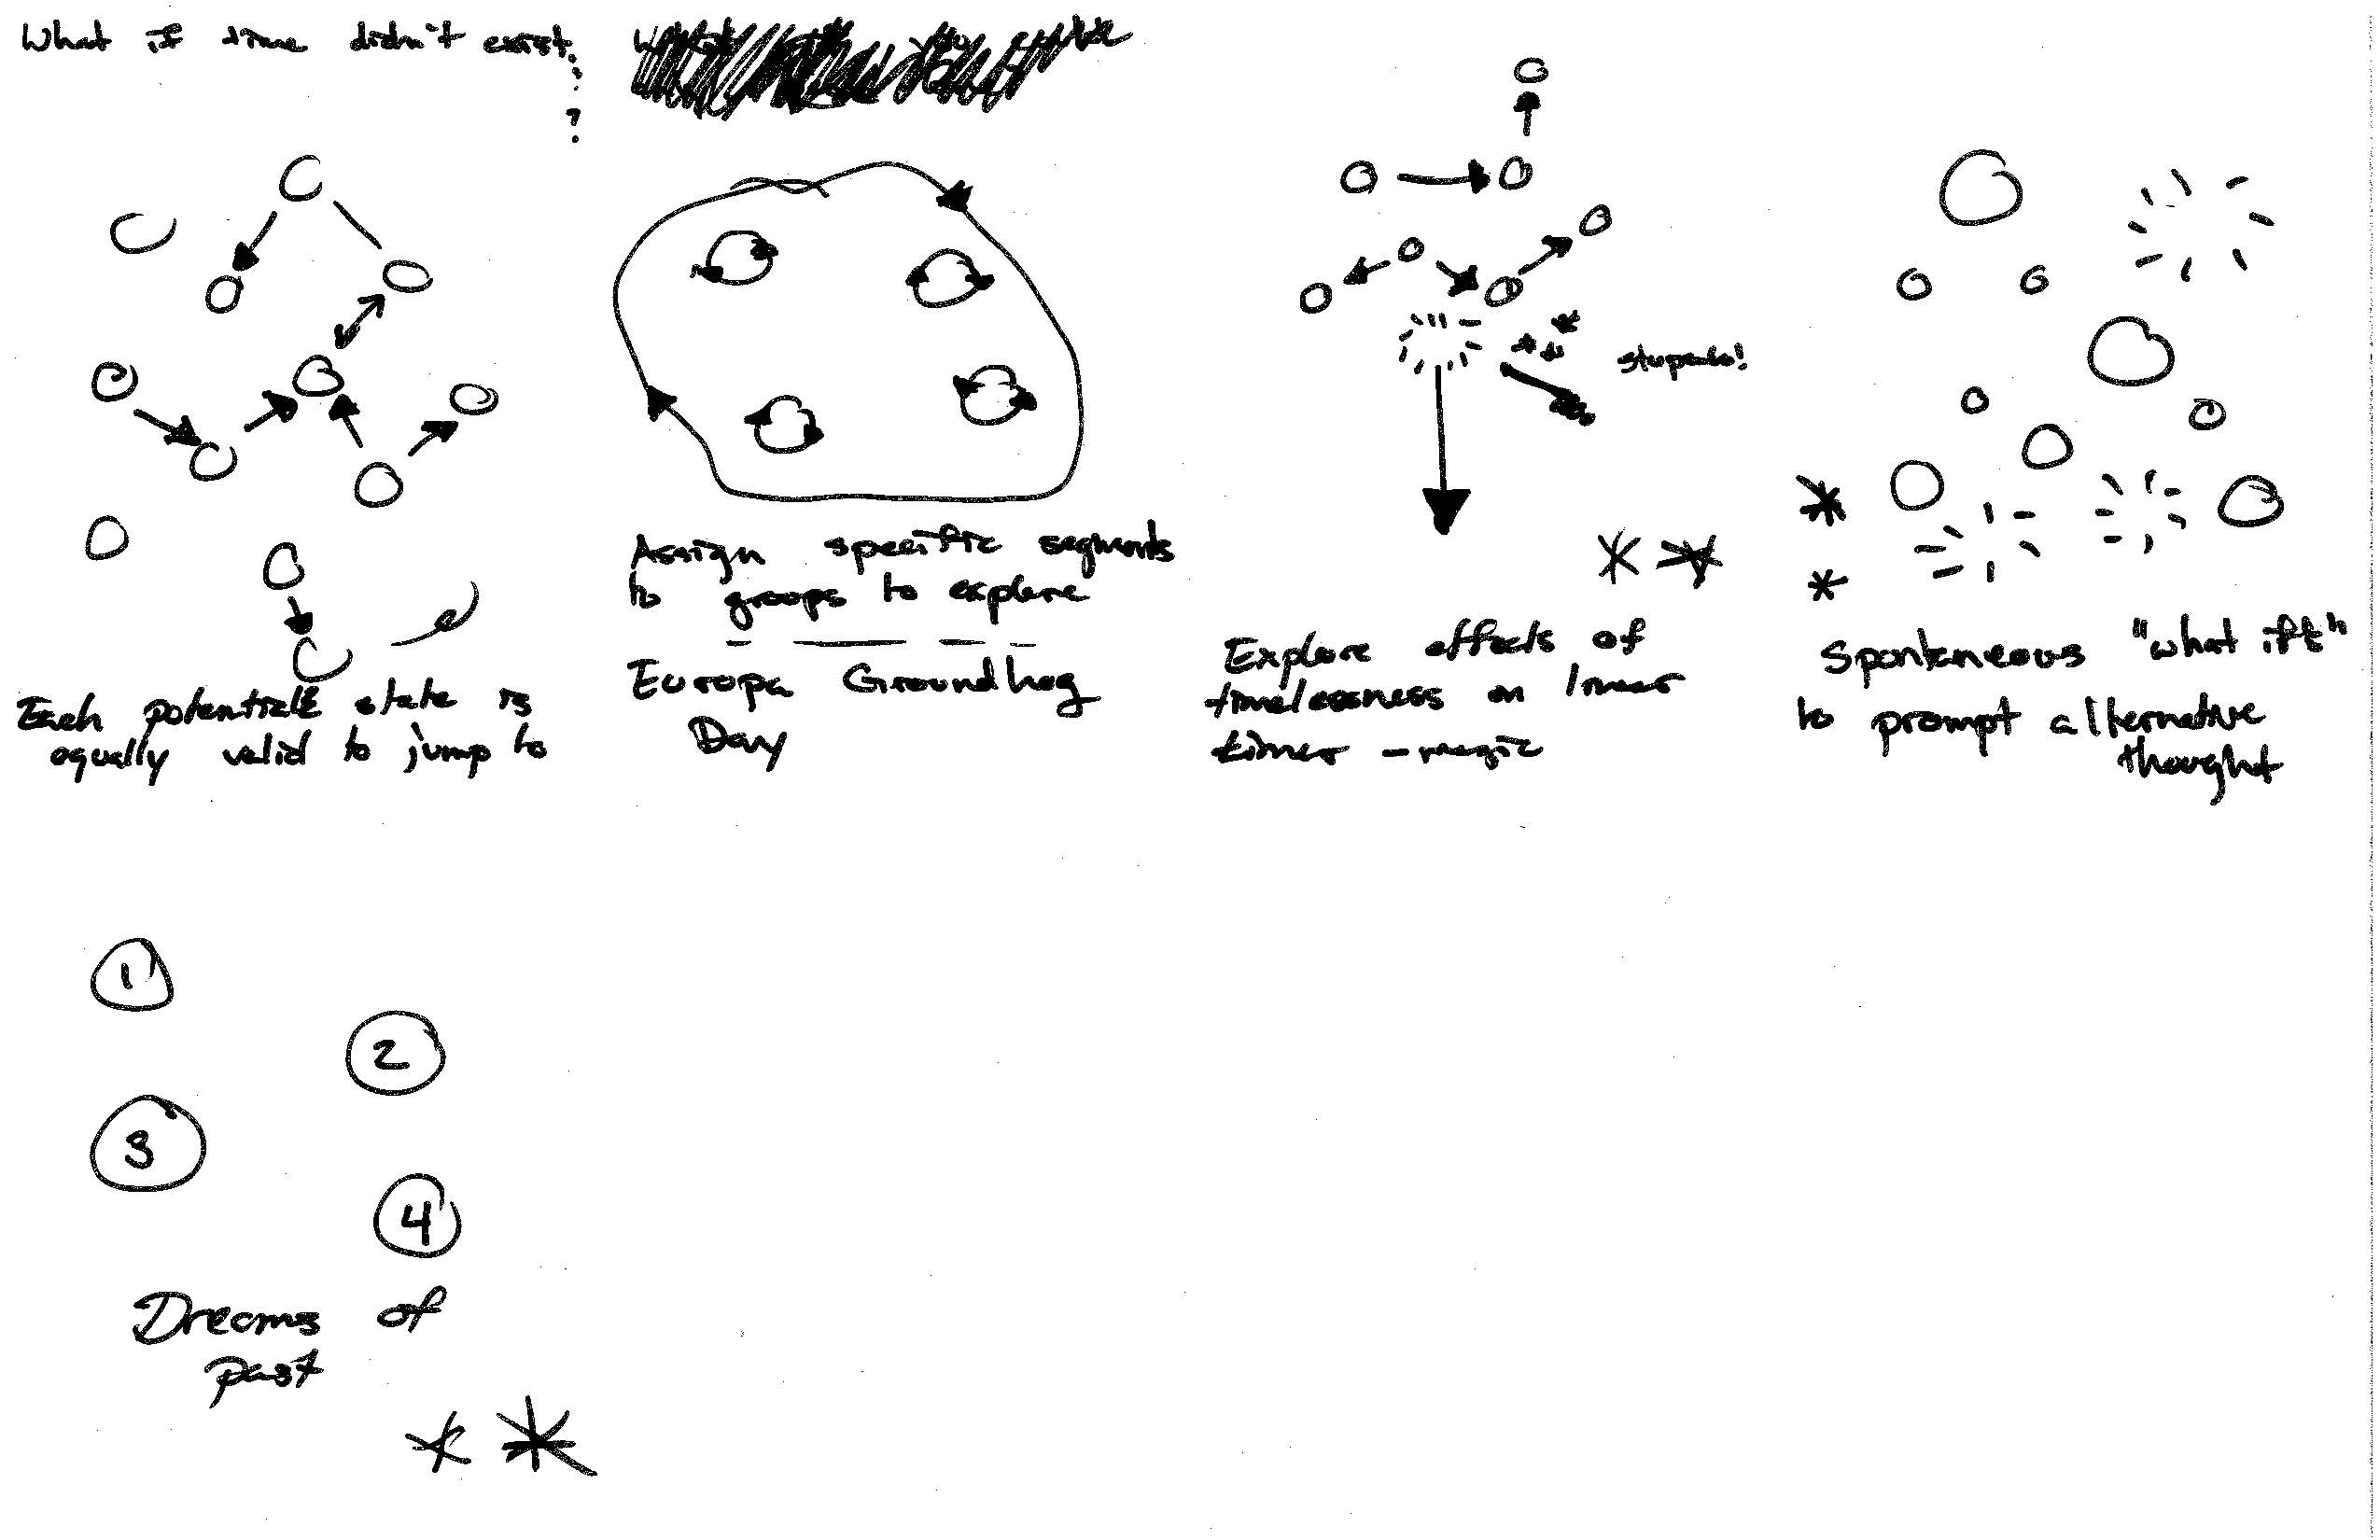 What if time didn't exist
?
Each potential state is
equally valid to jump to
Assign specific segments
to groups to explore
Europa Groundhog
Day
Explore effects of
timelessness on linear
times - magic
Spontaneous "what ifs"
to prompt alternative
thought
1
2
3
4
Dreams of
past